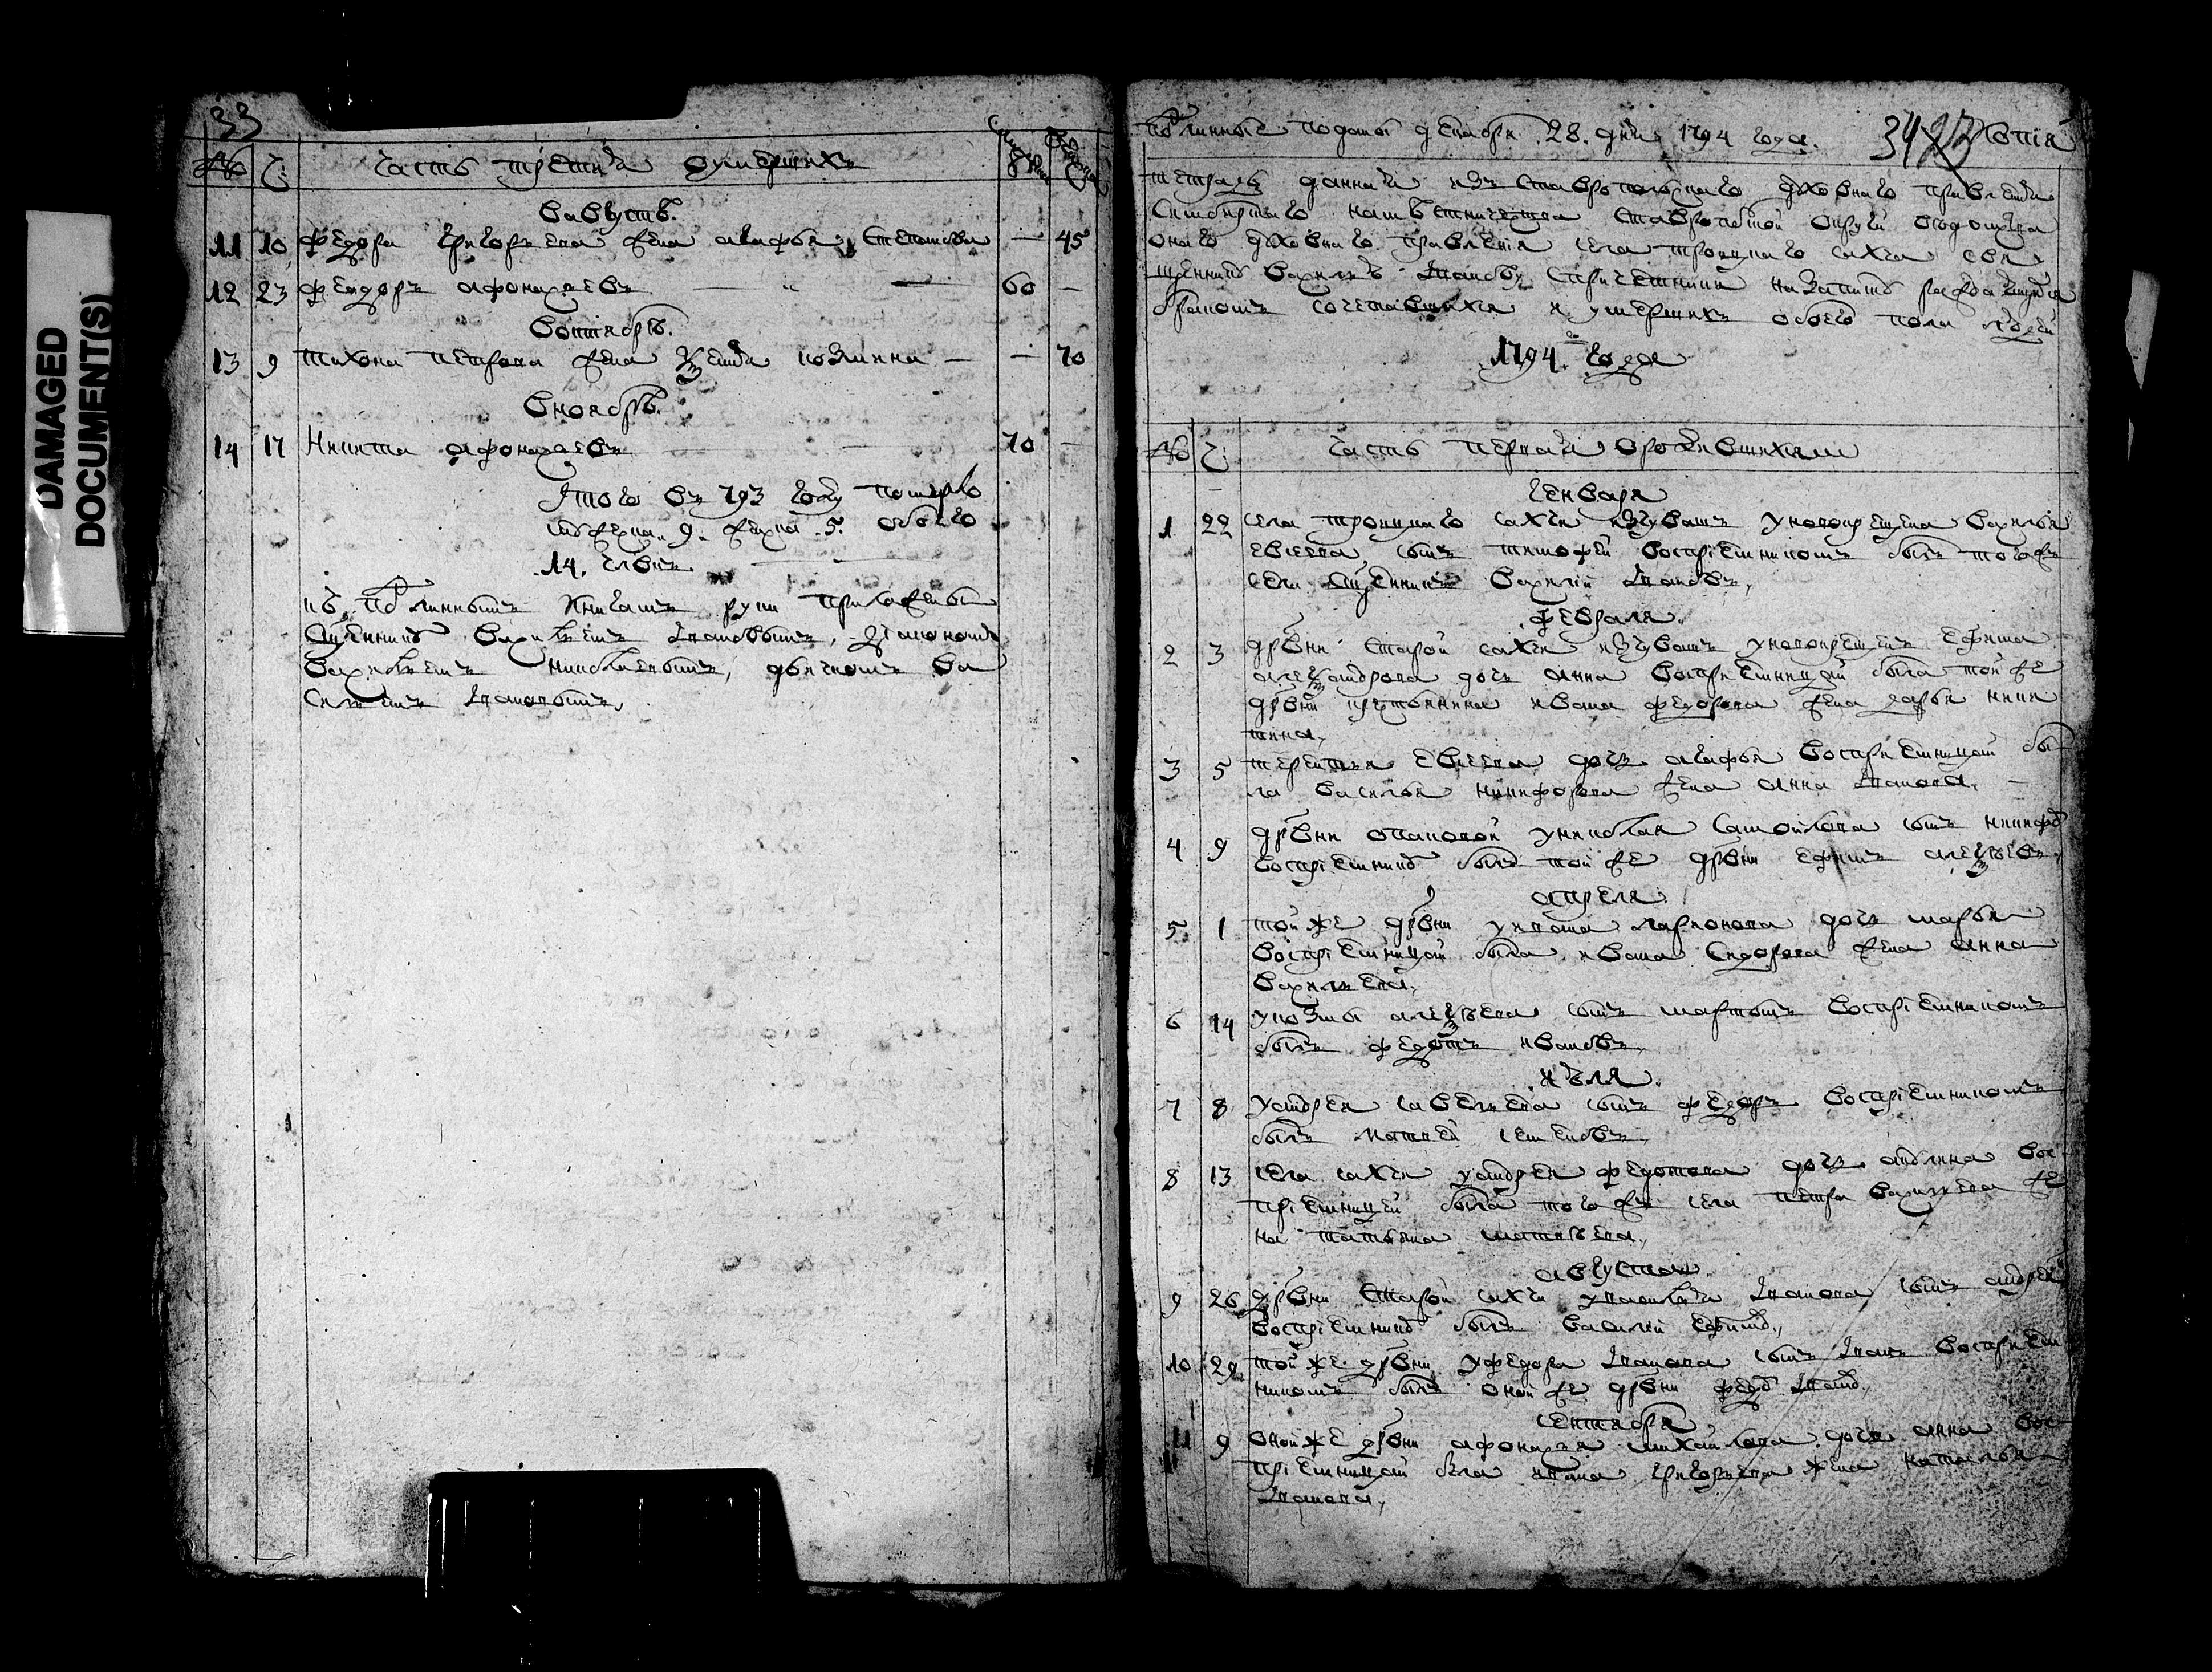 DAMAGED
DOCUMENT(S)
33
№ Ч: Часть третия оумершихъ
Вавгустѣ.
11 10 Федора Григорьева жена Агафья Степанова — 45
12 23 Феадоръ Афонасьевъ — 60 —
Воктябрѣ.
13 9 Тихона Петрова жена Ксенья Козмина — — 70
Вноябрѣ.
14 17 Никита Афонасьевъ — 70 —
Итого въ 793 году померло
мужеска 9. женска 5. обоего
14. члвкъ
къ подлиннымъ книгамъ руки приложены
Сщенникъ Василиемъ Ивановымъ, Дьякономъ
Василиемъ Николаевымъ, дьячкомъ Ва
силиемъ Ивановымъ,
подлинные поданы декабря 28. дня 1794 года. 34 копия
тетрадь данная изъ Ставропольскаго духовнаго правления
Симбирскаго наместничества Ставропольской округи
онаго духовнаго правления села Троицкаго Сахчи свя
щеннику Василью Иванову спричетники назапись раждающихся
бракомъ сочетавшихся и умершихъ обоего пола людей
1794 го года
№ Ч: Часть первая ородившихся
Генваря
1 22 Села Троицкаго Сахчи изчувашъ уновокрещена Василья
Евсеева сынъ Тимофей восприемникомъ былъ тогожъ
села сщенникъ Василий Ивановъ,
Февраля.
2 3 Дрвни Старой Сахчи изчувашъ уновокрещенъ Ефима
Александрова дочь Анна восприемницей была той же
дрвни Ивана Федорова жена Дарья Ники
тина,
3 5 Терентья Евсеева дочь Агафья восприемницей бы
ла Василья Никифорова жена Анна Иванова,
4 9 Дрвни уНиколая Самойлова сынъ Никифоръ
восприемникъ былъ той же дрвни Ефимъ Алексѣевъ,
Апреля
5 1 той же дрвни уИвана Ларионова дочь Марья
восприемницей была Ивана Сидорова жена Анна
Васильева,
6 14 уКозмы Алексѣева сынъ Мартынъ восприемникомъ
былъ Федотъ Ивановъ,
Июля.
7 8 уАндрея Савельева сынъ Федоръ восприемникомъ
былъ Матвей Семеновъ,
8 13 Села Сахчи уАндрея Федотова дочь Акулина вос
приемницей была того жъ села Петра Васильева же
на Татьяна Матвѣева,
Августа.
9 26 Дрвни Старой Сахчи Иванова сынъ Андрей
восприемникъ былъ Василий Ефимовъ,
10 29 той же дрвни уФедора Иванова сынъ Иванъ восприем
никомъ былъ оной же дрвни Федоръ Ивановъ,
Сентября
11 9 Оной же дрвни Афонасья Михайлова дочь Анна вос
приемницей была Ивана Григорьева жена Наталья
Иванова,